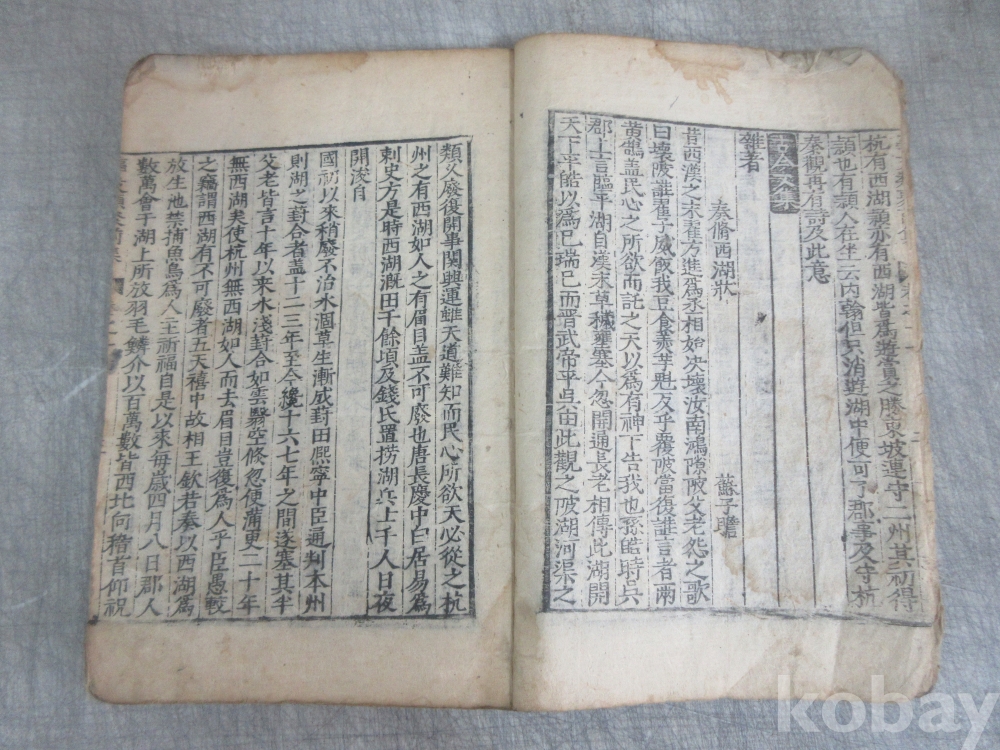 杭有西湖頴亦有西湖皆爲遊賞之勝東坡連守二州其初得
頴也有頴人在坐云内翰但只消遊湖中便可了郡事及守杭
秦觀再有詩及此意
古今文集
雜著
奏脩西湖狀 蘇子瞻
昔西漢之末翟方進爲丞相始决壞汝南鴻隙陂父老怨之歌
曰壞陂誰翟子威飯我豆食羹芋魁反乎覆陂當復誰言者兩
黄鵠盖民心之所欲而託之天以爲有神下告我也孫皓時吳
郡上言臨平湖自漢末草穢壅塞今忽開通長老相傳此湖開
天下平皓以爲已瑞已而晋武帝平吳由此觀之陂湖河渠之
類久廢復開事関興運雖天道難知而民心所欲天必從之杭
州之有西湖如人之有眉目盖不可廢也唐長慶中白居易爲
刺史方是時西湖溉田千餘頃及錢氏置撈湖兵士千人日夜
開浚自
國初以來稍廢不治水涸草生漸成葑田熈寧中臣通判本州
則湖之葑合者盖十二三年至今纔十六七年之間遂塞其半
父老皆言十年以來水淺葑合如雲翳空倏忽便滿更二十年
無西湖矣使杭州無西湖如人而去眉目豈復爲人乎臣愚較
之竊謂西湖有不可廢者五天禧中故相王欽若奏以西湖爲
放生池禁捕魚鳥爲人主祈福自是以來毎歳四月八日郡人
數萬會于湖上所放羽毛鱗介以百萬數皆西北向稽首仰祝
kobay